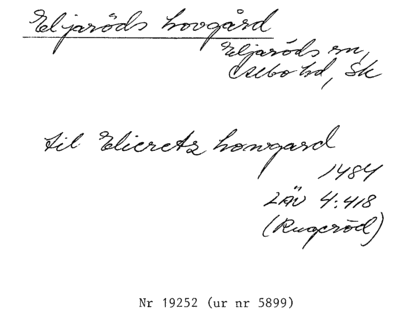 Eljaröds hovgård
Eljaröds sn,
Albo hd, Sk
till Elieretz howgard
1484
LÄU 4:418
(Rugeröd)
Nr 19252 (ur nr 5899)